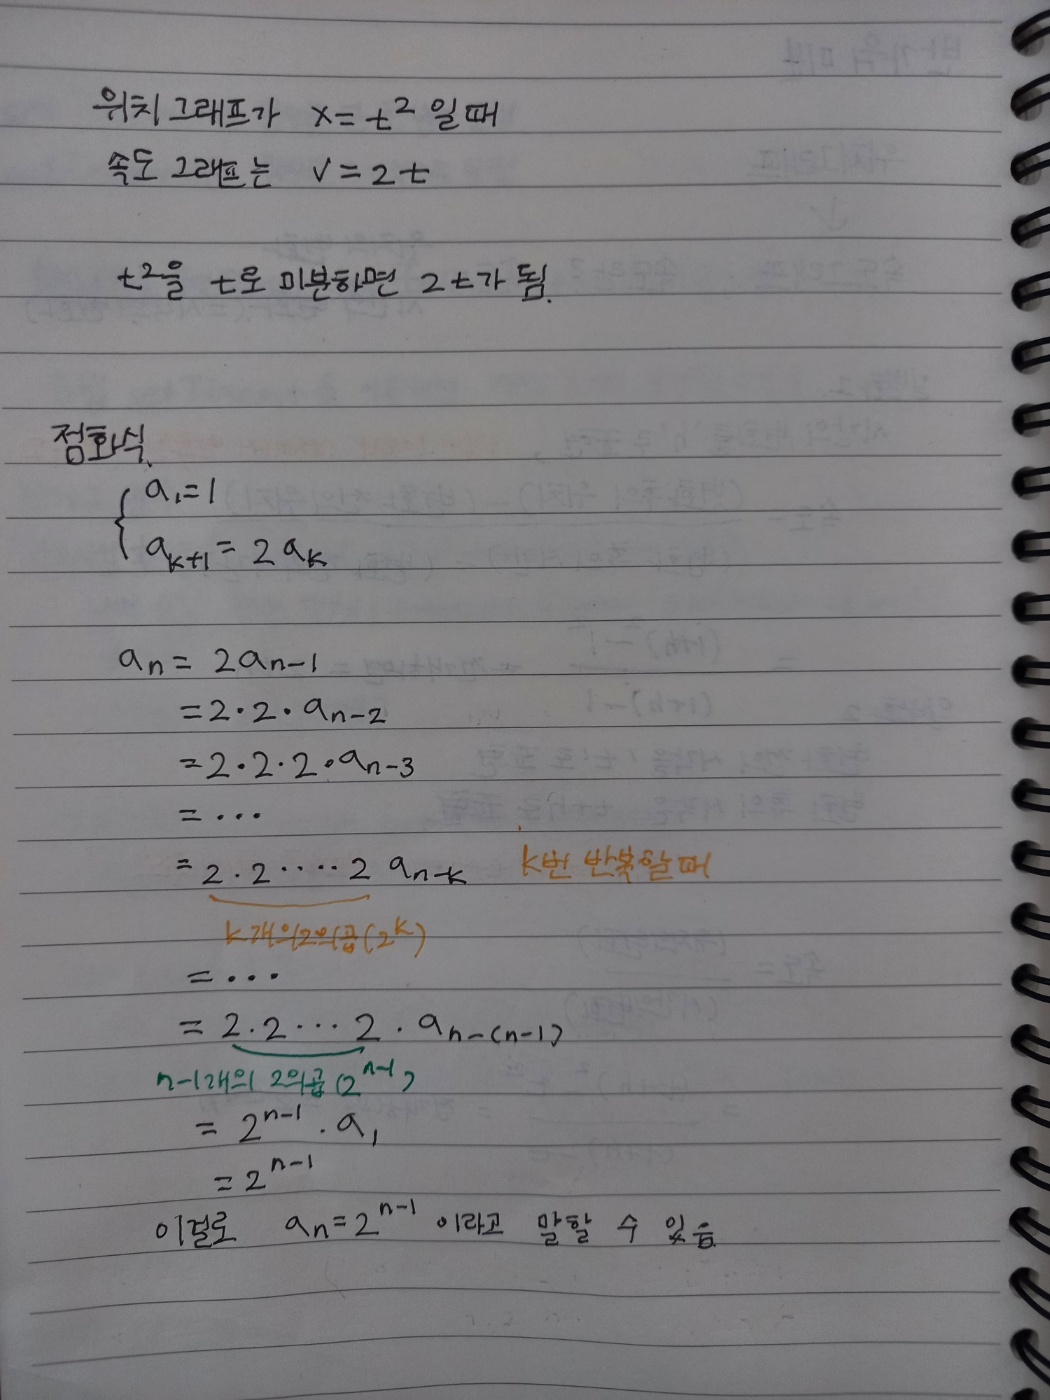 위치 그래프가 x = t² 일 때
속도 그래프는 v = 2t
t²을 t로 미분하면 2t가 됨.
점화식.
{ a₁ = 1
a_{k+1} = 2a_k
a_n = 2a_{n-1}
= 2·2·a_{n-2}
= 2·2·2·a_{n-3}
= ···
= 2·2····2 a_{n-k} k번 반복할 때
k개의 2의 곱(2^k)
= ···
= 2·2···2·a_{n-(n-1)}
n-1개의 2의 곱(2^{n-1})
= 2^{n-1}·a₁
= 2^{n-1}
이걸로 a_n = 2^{n-1} 이라고 말할 수 있음